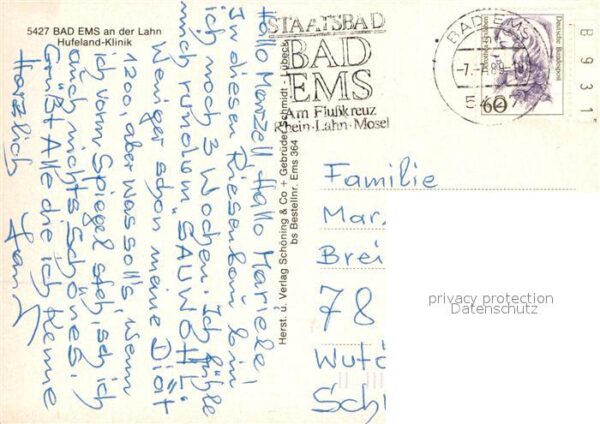 5427 BAD EMS an der Lahn
Hufeland-Klinik
Hallo Hallo Mariele!
In diesen Riesenbau bin
ich noch 3 Wochen. Ich fühle
mich rundum "SAUWOHL"
Weniger schon meine Diät
1200, aber was soll's, wenn
ich vorm Spiegel steh, seh ich
auch nichts Schönes!
Grüßt Alle die ich kenne
Herzlich
Herst. u. Verlag Schöning & Co + Gebrüder Schmidt, Lübeck
bs Bestellnr. Ems 364
STAATSBAD
BAD
EMS
Am Flußkreuz
Rhein·Lahn·Mosel
BAD EMS
5427
Deutsche Bundespost
60
B 9 3 1
Familie
Mar.
Brei
78
Wutö
Sch
privacy protection
Datenschutz